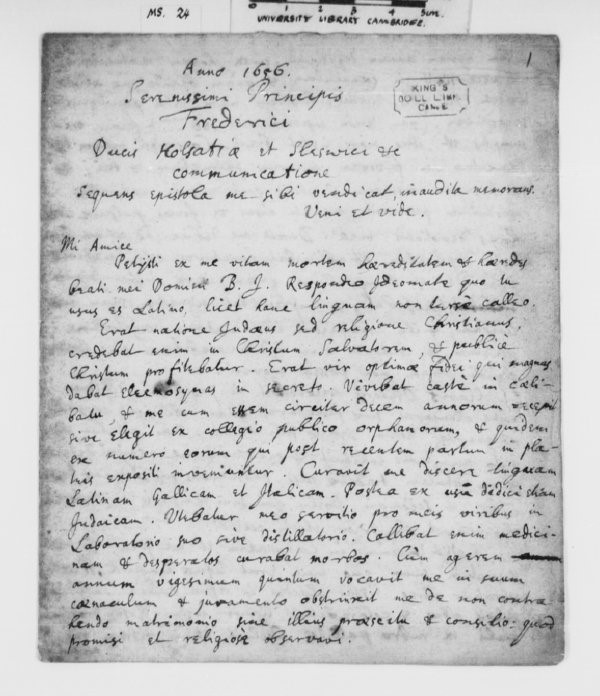 MS. 24
UNIVERSITY LIBRARY CAMBRIDGE.
1
Anno 1656.
Serenissimi Principis
Frederici
KING'S
COLL. LIBR.
CAMB
Ducis Holsatiæ et Sleswici &c
communicatione
Sequens epistola me sibi vendicat, inaudita memorans.
Veni et vide.
Mi Amice
Petijsti ex me vitam mortem hæreditatem & hæredes
beati mei Domini B. J. Respondeo Ideomate quo tu
usus es Latino, licet hanc linguam non calleo.
Erat natione Judæus sed religione Christianus,
credebat enim in Christum Salvatorem, & publicè
Christum profitebatur. Erat vir optimæ fidei qui magnas
dabat eleemosynas in secreto. Vivebat castè in cæli-
batu, & me cum essem circiter decem annorum recepit
sive elegit ex collegio publico orphanorum, & quidem
ex numero eorum qui post recentem partum in pla-
teis expositi inveniuntur. Curavit me discere linguam
Latinam Gallicam et Italicam. Postea ex usu didici etiam
Judaicam. Utebatur meo servitio pro meis viribus in
Laboratorio suo sive distillatorio. Callebat enim medici-
nam & desperatos curabat morbos. Cùm agerem
annum vigesimum quintum vocavit me in suum
cænaculum & juramento obstrinxit me de non contra-
hendo matrimonio sine illius præscitu & consilio: quod
promisi et religiosè observavi.